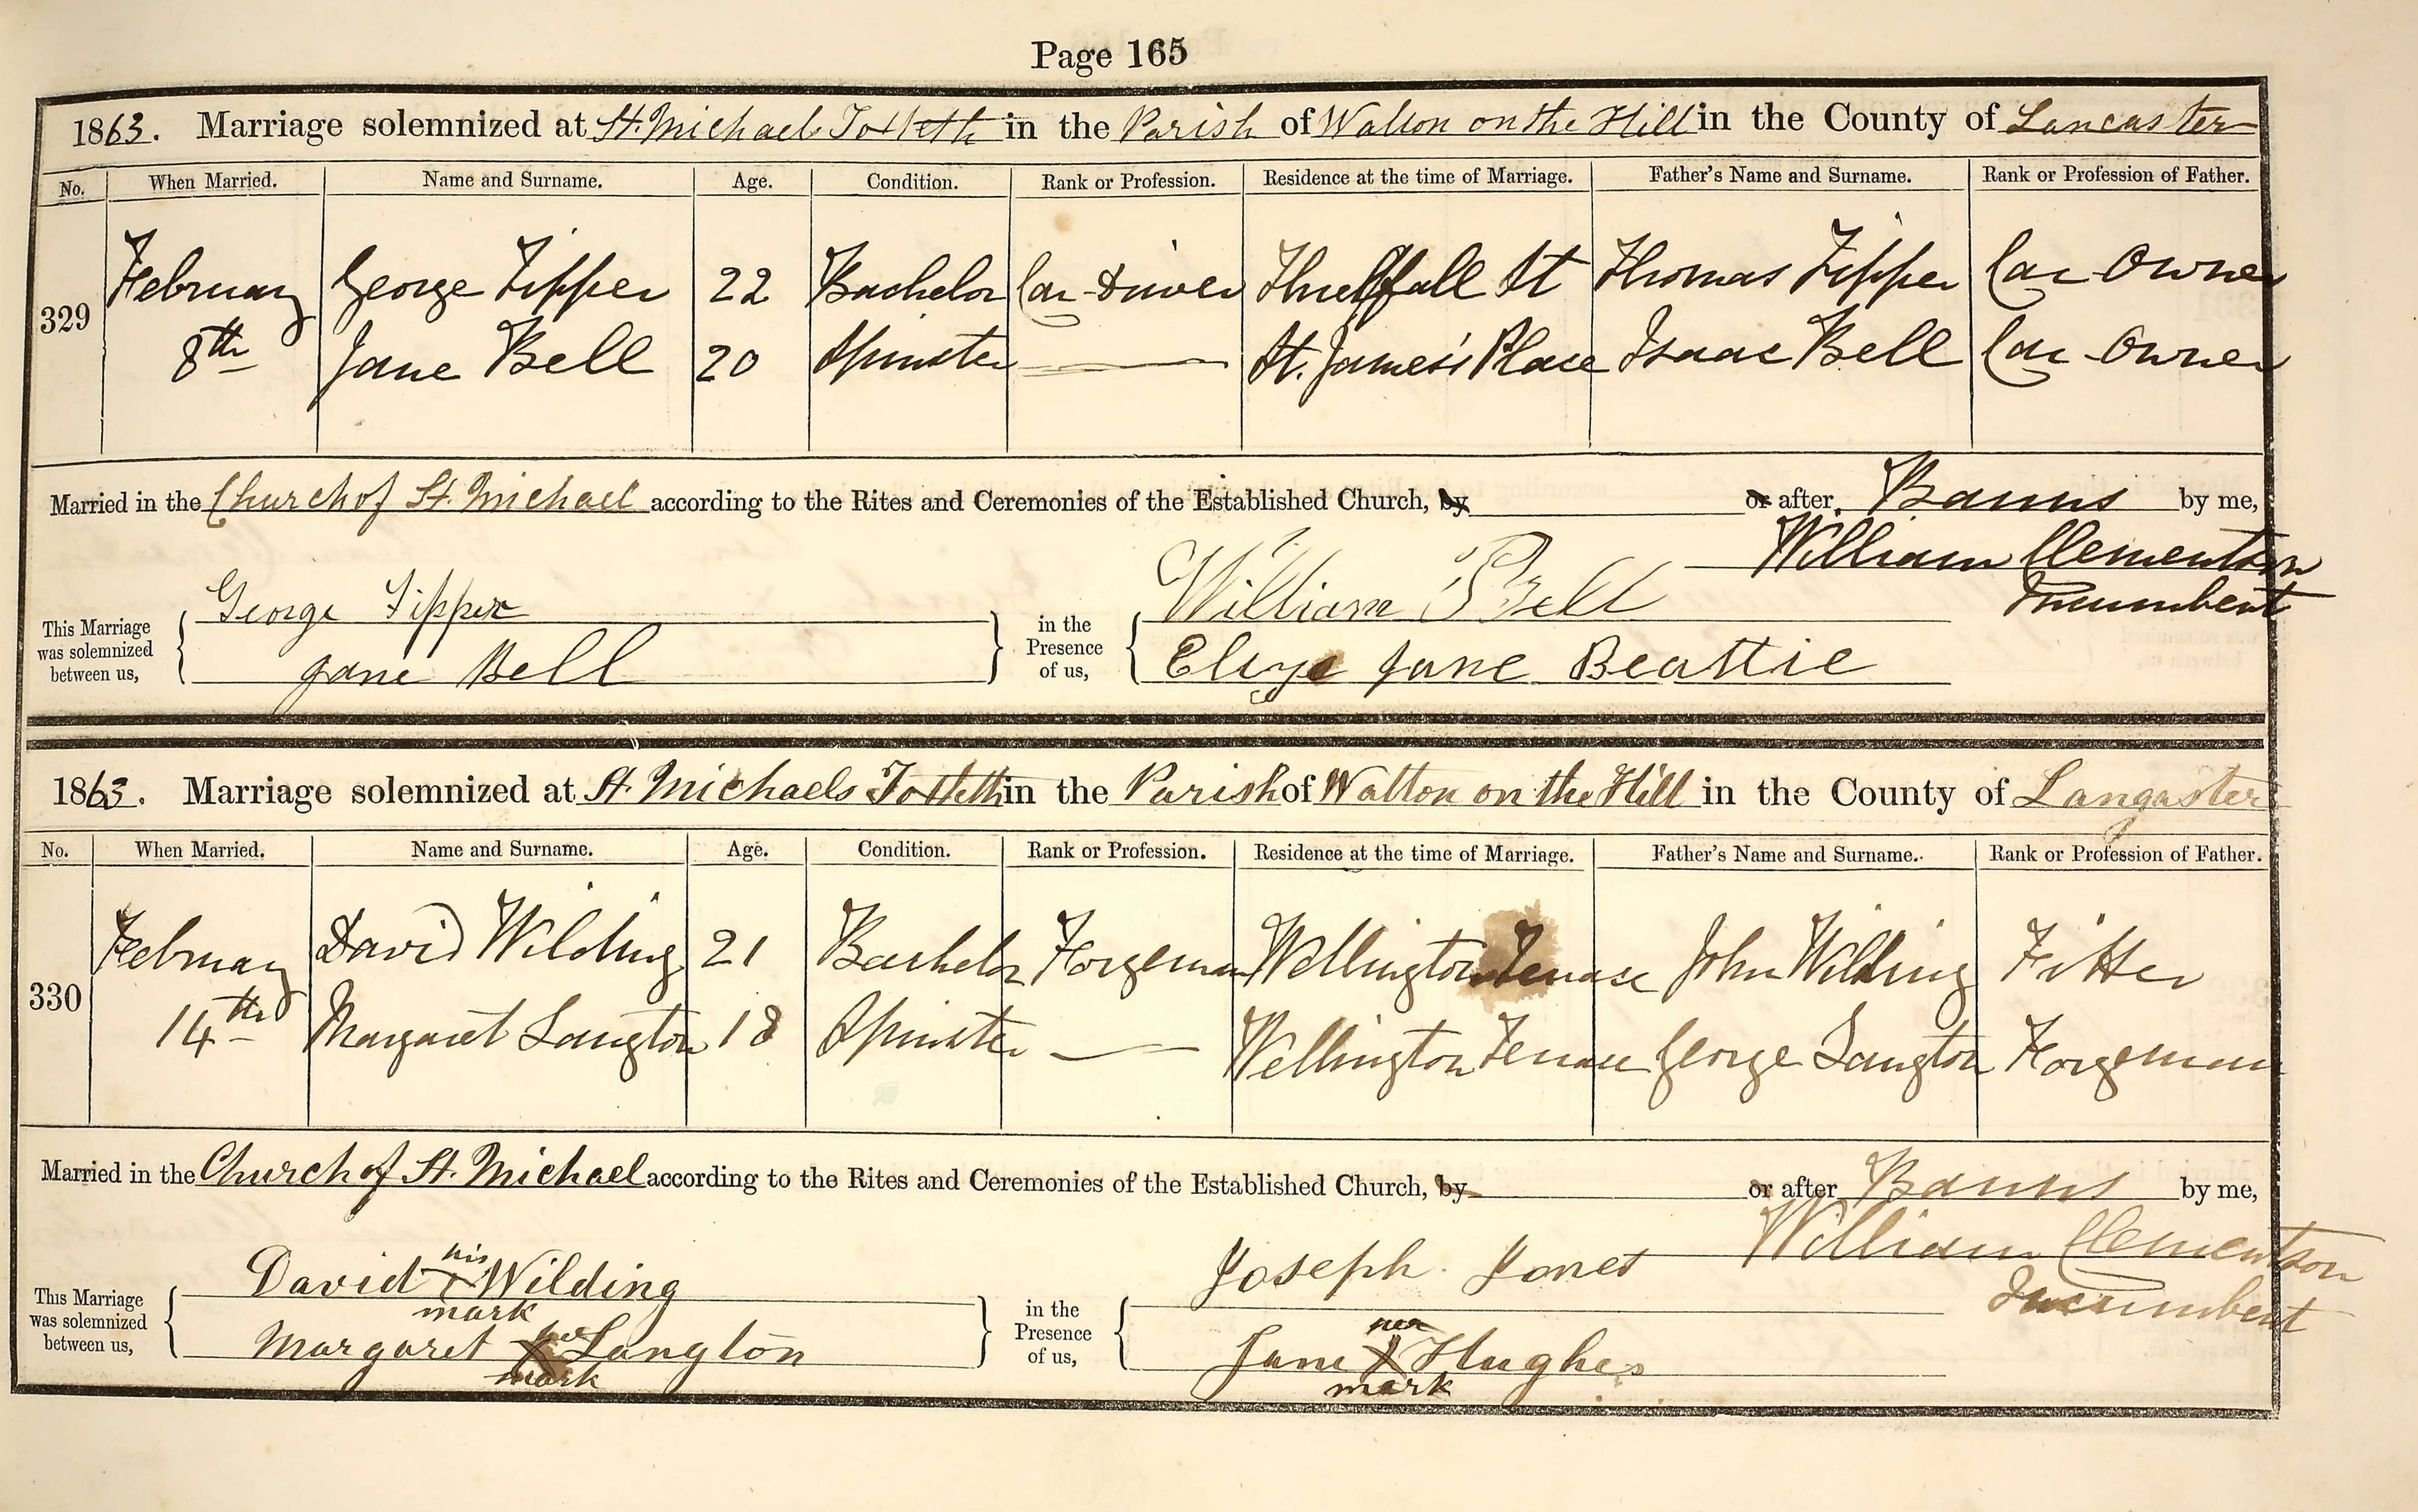 Page 165
1863. Marriage solemnized at St. Michael Toxteth in the Parish of Walton on the Hill in the County of Lancaster
No. When Married. Name and Surname. Age. Condition. Rank or Profession. Residence at the time of Marriage. Father's Name and Surname. Rank or Profession of Father.
329 February George Tipper 22 Bachelor Car Driver Threlfall St Thomas Tipper Car Owner
8th Jane Bell 20 Spinster — St. James's Place Isaac Bell Car Owner
Married in the Church of St. Michael according to the Rites and Ceremonies of the Established Church, by or after Banns by me,
William Clementson
Incumbent
This Marriage was solemnized between us, George Tipper in the Presence of us, William Bell
Jane Bell Eliza Jane Beattie
1863. Marriage solemnized at St. Michaels Toxteth in the Parish of Walton on the Hill in the County of Langaster
No. When Married. Name and Surname. Age. Condition. Rank or Profession. Residence at the time of Marriage. Father's Name and Surname. Rank or Profession of Father.
330 February David Wilding 21 Bachelor Forgeman Wellington Terrace John Wilding Fitter
14th Margaret Langton 18 Spinster — Wellington Terrace George Langton Forgeman
Married in the Church of St. Michael according to the Rites and Ceremonies of the Established Church, by or after Banns by me,
William Clementson
Incumbent
This Marriage was solemnized between us, David his X Wilding mark in the Presence of us, Joseph Jones
Margaret her X Langton mark Jane her X Hughes mark